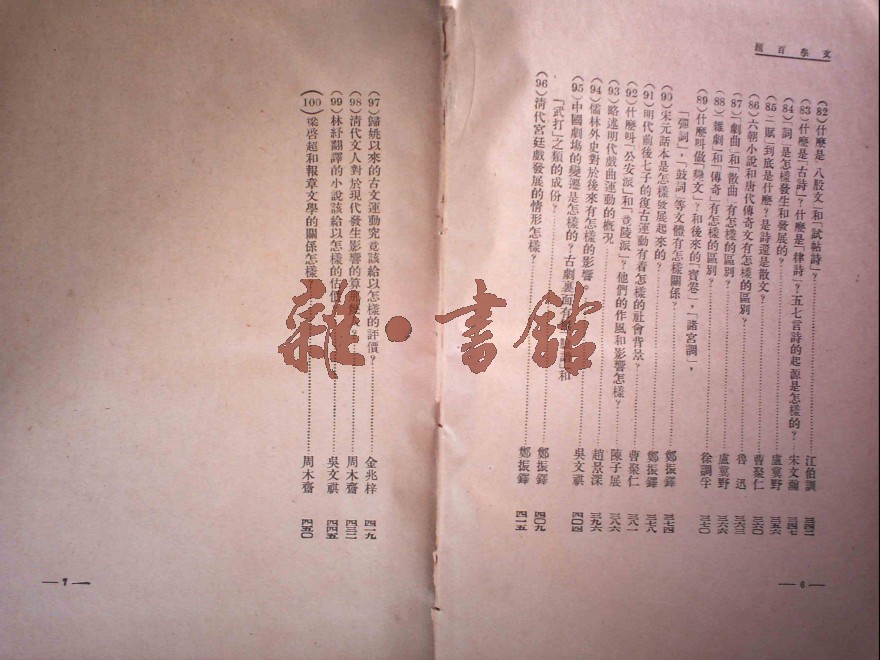 文學百題
(82)什麼是「八股文」和「試帖詩」?……江伯訓 三四二
(83)什麼是「古詩」?什麼是「律詩」?五七言詩的起源是怎樣的?……宋文翰 三四七
(84)「詞」是怎樣發生和發展的?……盧冀野 三五六
(85)「賦」到底是什麼?是詩還是散文?……曹聚仁 三六〇
(86)六朝小說和唐代傳奇文有怎樣的區別?……魯迅 三六三
(87)「劇曲」和「散曲」有怎樣的區別?……盧冀野 三六六
(88)「雜劇」和「傳奇」有怎樣的區別?……徐調孚 三七〇
(89)什麼叫做「變文」?和後來的「寶卷」,「諸宮調」,
「彈詞」,「鼓詞」等文體有怎樣關係?……鄭振鐸 三七四
(90)宋元話本是怎樣發展起來的?……鄭振鐸 三七八
(91)明代前後七子的復古運動有着怎樣的社會背景?……曹聚仁 三八一
(92)什麼叫「公安派」和「竟陵派」?他們的作風和影響怎樣?……陳子展 三八六
(93)略述明代戲曲運動的概況……趙景深 三九六
(94)儒林外史對於後來有怎樣的影響?……吳文祺 四〇四
(95)中國劇場的變遷是怎樣的?古劇裏面有 和
「武打」之類的成份?……鄭振鐸 四〇九
(96)清代宮廷戲發展的情形怎樣?……鄭振鐸 四一五
—6—
(97)歸姚以來的古文運動究竟該給以怎樣的評價?……金兆梓 四一九
(98)清代文人對於現代發生影響的算 ……周木齋 四三二
(99)林紓翻譯的小說該給以怎樣的估價?……吳文祺 四四五
(100)梁啓超和報章文學的關係怎樣?……周木齋 四五〇
—7—
雜·書館